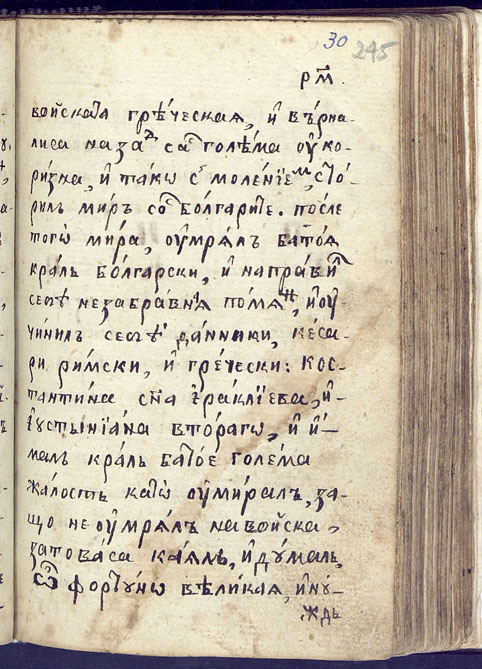 30 245
рм҃.
войскатѧ грѣческаѧ, и҆ вѣрна-
лиса назаⷣ саⷭ҇ голѣма ѹ҆ко-
ризна, и҆ такѡ сⸯ моленїеⷨ, сто-
рилъ миръ соⷭ҇ болгарите. после
тогѡ мира, ѹ҆мрѧлъ батоѧ
краль болгарски, и҆ направиⷧ
себѣ незабравнїѧ помѧⷮ, и҆ ѹ҆-
чинилъ себѣ даннаки, кеса-
ри римски, и҆ грѐчески: кос-
тантина сн҃а і҆раклїева, и҆-
ꙋ҆стынїана вторагѡ, и҆ и҆-
малъ краль батое голема
жалость катѡ ѹ҆миралъ, за-
що не ѹ҆мрѧлъ на войска,
затоваса каѧлъ, и҆ думалъ,
ѽ фортуно вѣликаѧ, и҆ нꙋ-
ждь